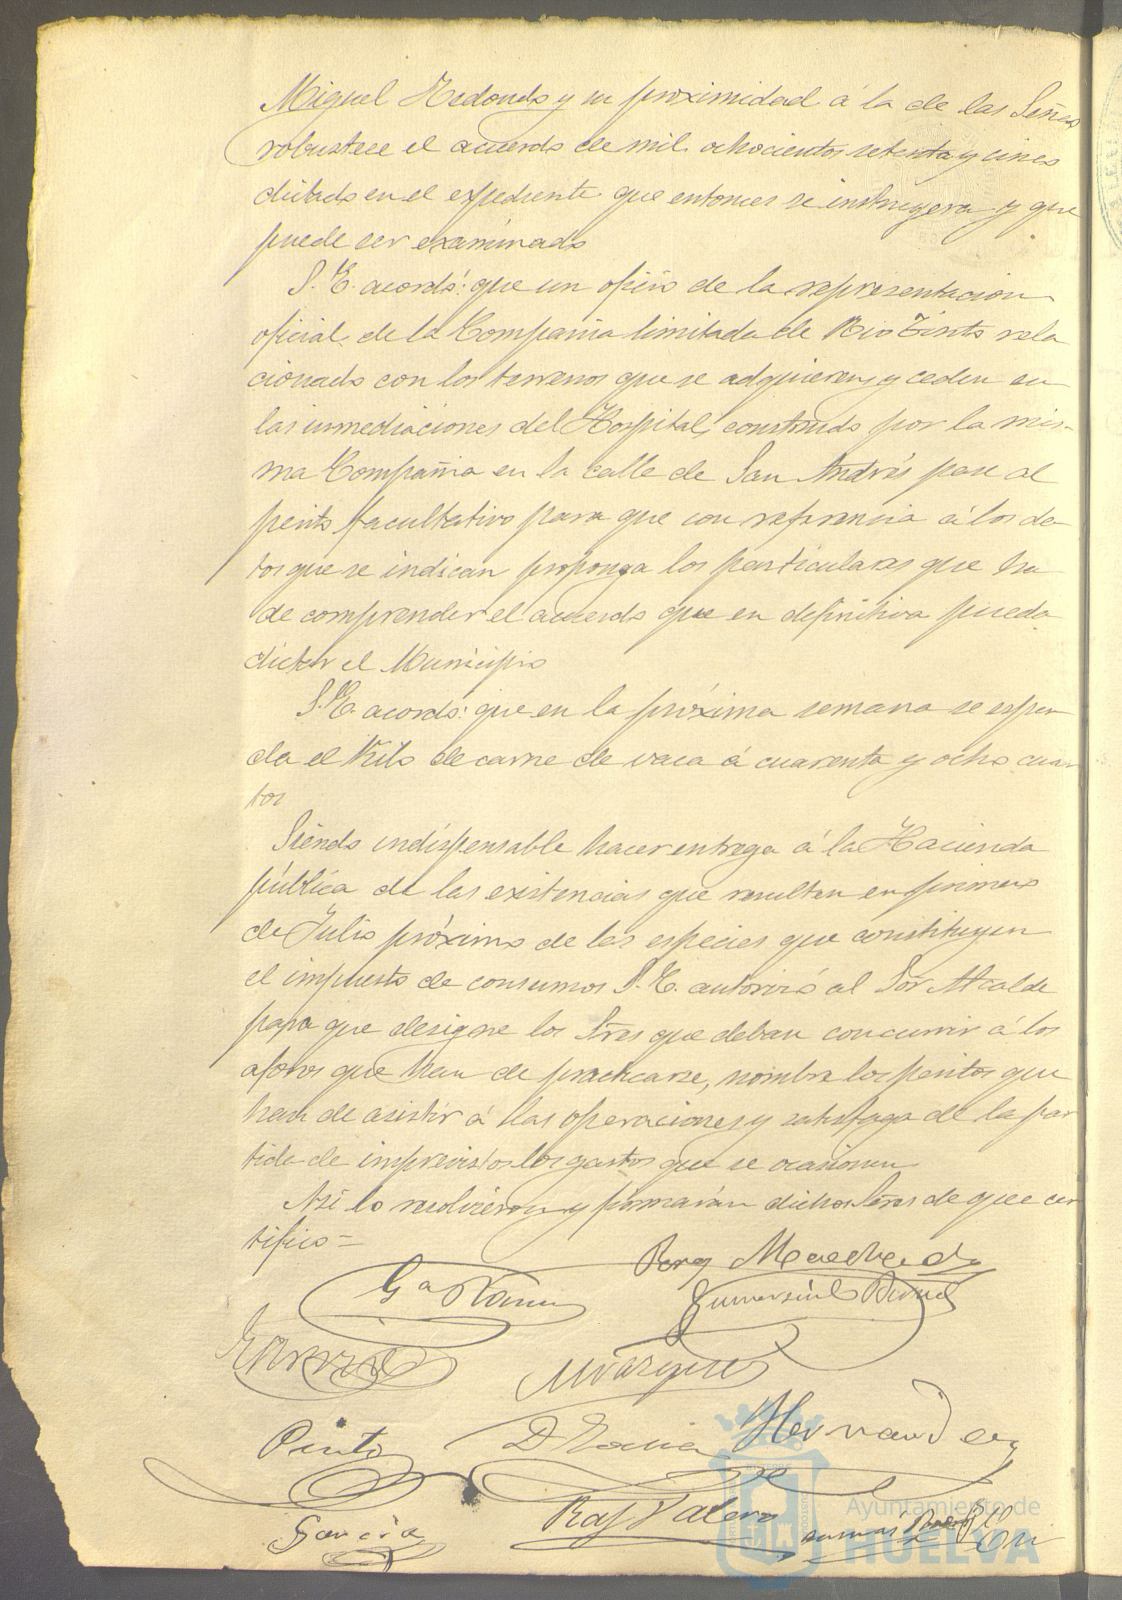 Miguel Redondo y su proximidad á la de las Señas
robustece el acuerdo de mil ochocientos setenta y cinco
dictado en el expediente que entonces se instruyera y que
puede ser examinado
S. E. acordó: que un oficio de la representacion
oficial de la Compañia limitada de Rio Tinto rela
cionado con los terrenos que se adquieren y ceden en
las inmediaciones del Hospital construido por la mis-
ma Compañia en la calle de San Andrés pase al
perito facultativo para que con referencia á los da
tos que se indican proponga los particulares que ha
de comprender el acuerdo que en definitiva pueda
dictar el Municipio
S. E. acordó: que en la próxima semana se espen
da el Kilo de carne de vaca á cuarenta y ocho cuar
tos
Siendo indispensable hacer entrega á la Hacienda
pública de las existencias que resulten en primero
de Julio próximo de las especies que constituyen
el impuesto de consumos S. E. autorizó al Sor Alcalde
para que designe los Sres que deban concurrir á los
aforos que han de practicarse, nombre los peritos que
han de asistir á las operaciones y satisfaga de la par
tida de imprevistos los gastos que se ocasionen
Asi lo resolvieron y firmarán dichos Sres de que cer
tifico=
Machado
Gª Ramos
Vazquez
Pinto Hernandez
Garcia Raf Valero
Ayuntamiento de
HUELVA